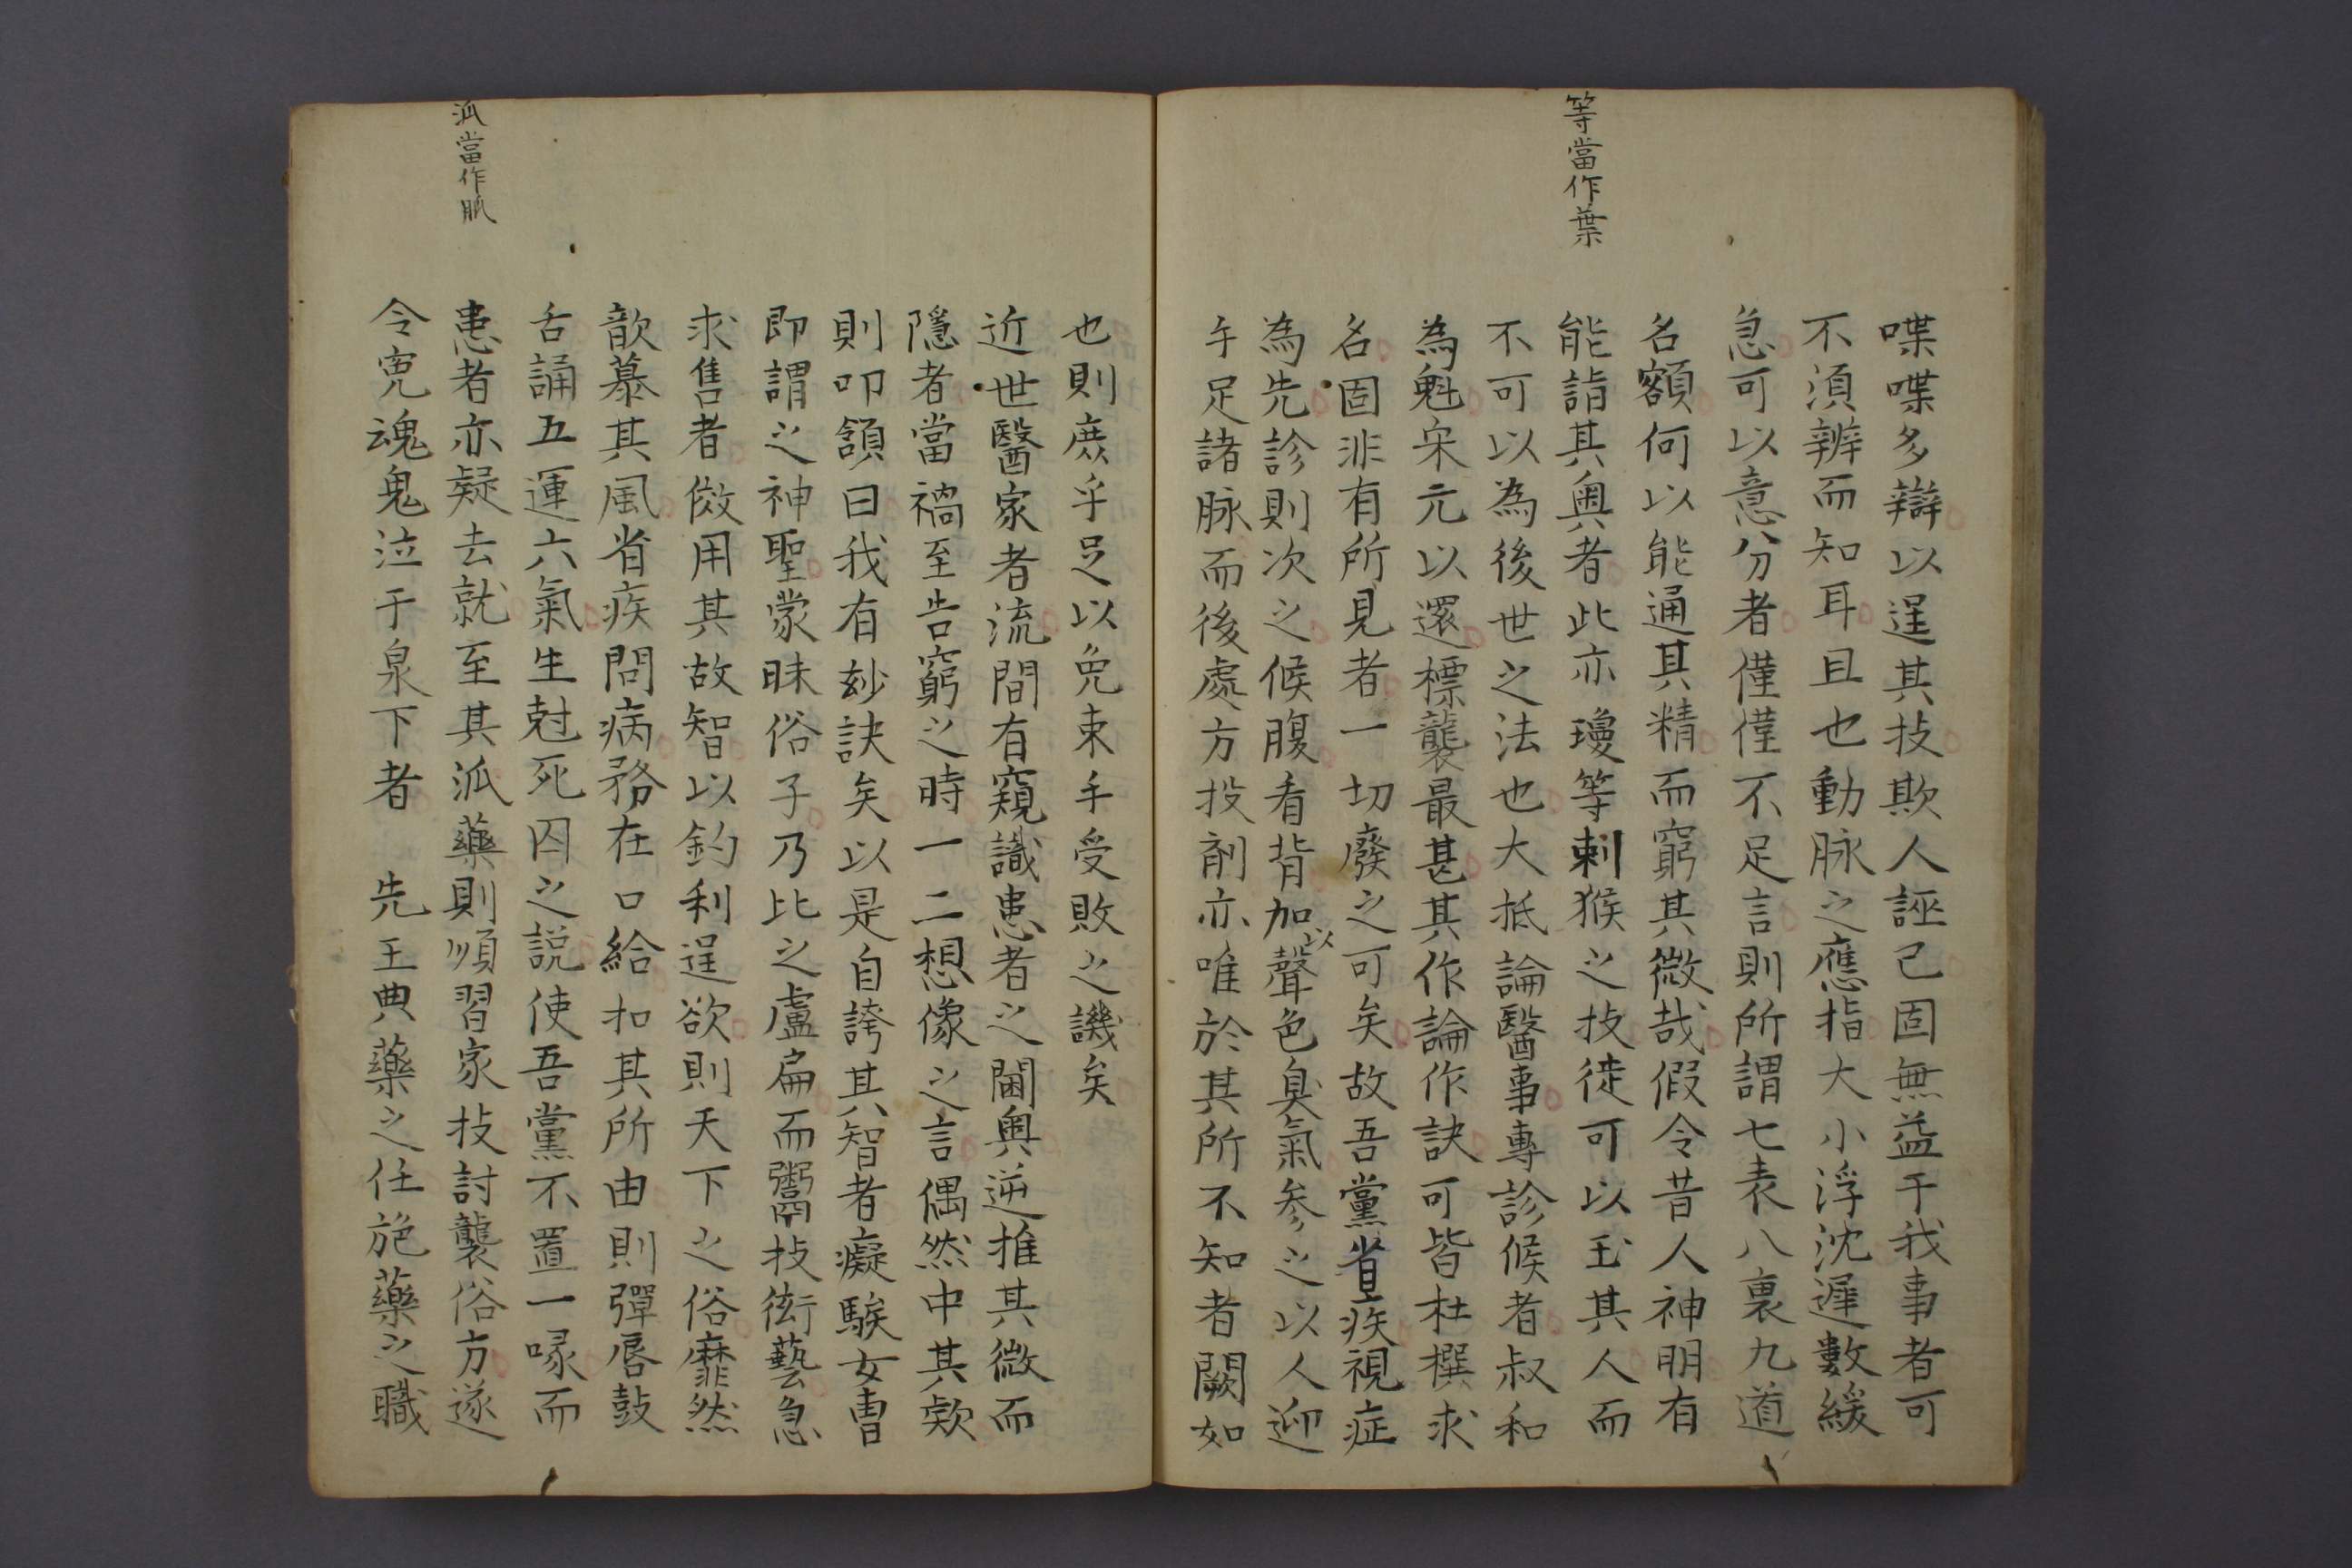 等當作葉
喋喋多辯以逞其技欺人誣己固無益于我事者可
不須辨而知耳且也動脉之應指大小浮沈遲數緩
急可以意分者僅僅不足言則所謂七表八裏九道
名額何以能通其精而窮其微哉假令昔人神明有
能詣其奧者此亦瓊等刺猴之技徒可以玉其人而
不可以為後世之法也大抵論醫事專診候者叔和
為魁宋元以還標襲最甚其作論作訣可皆杜撰求
名固非有所見者一切廢之可矣故吾黨省疾視症
為先診則次之候腹看背加以聲色臭氣參之以人迎
手足諸脉而後處方投劑亦唯於其所不知者闕如
也則庶乎足以免束手受敗之譏矣
近世醫家者流間有窺識患者之閫奧逆推其微而
隱者當禍至告窮之時一二想像之言偶然中其欵
則叩頷曰我有玅訣矣以是自誇其智者癡騃女曹
即謂之神聖蒙昧俗子乃比之盧扁而鬻技衒藝急
求售者倣用其故智以釣利逞欲則天下之俗靡然
歆慕其風省疾問病務在口給扣其所由則彈唇鼓
舌誦五運六氣生尅死囚之說使吾黨不置一喙而
患者亦疑去就至其泒藥則順習家技討襲俗方遂
令寃魂鬼泣于泉下者　先王典藥之任施藥之職
泒當作肌